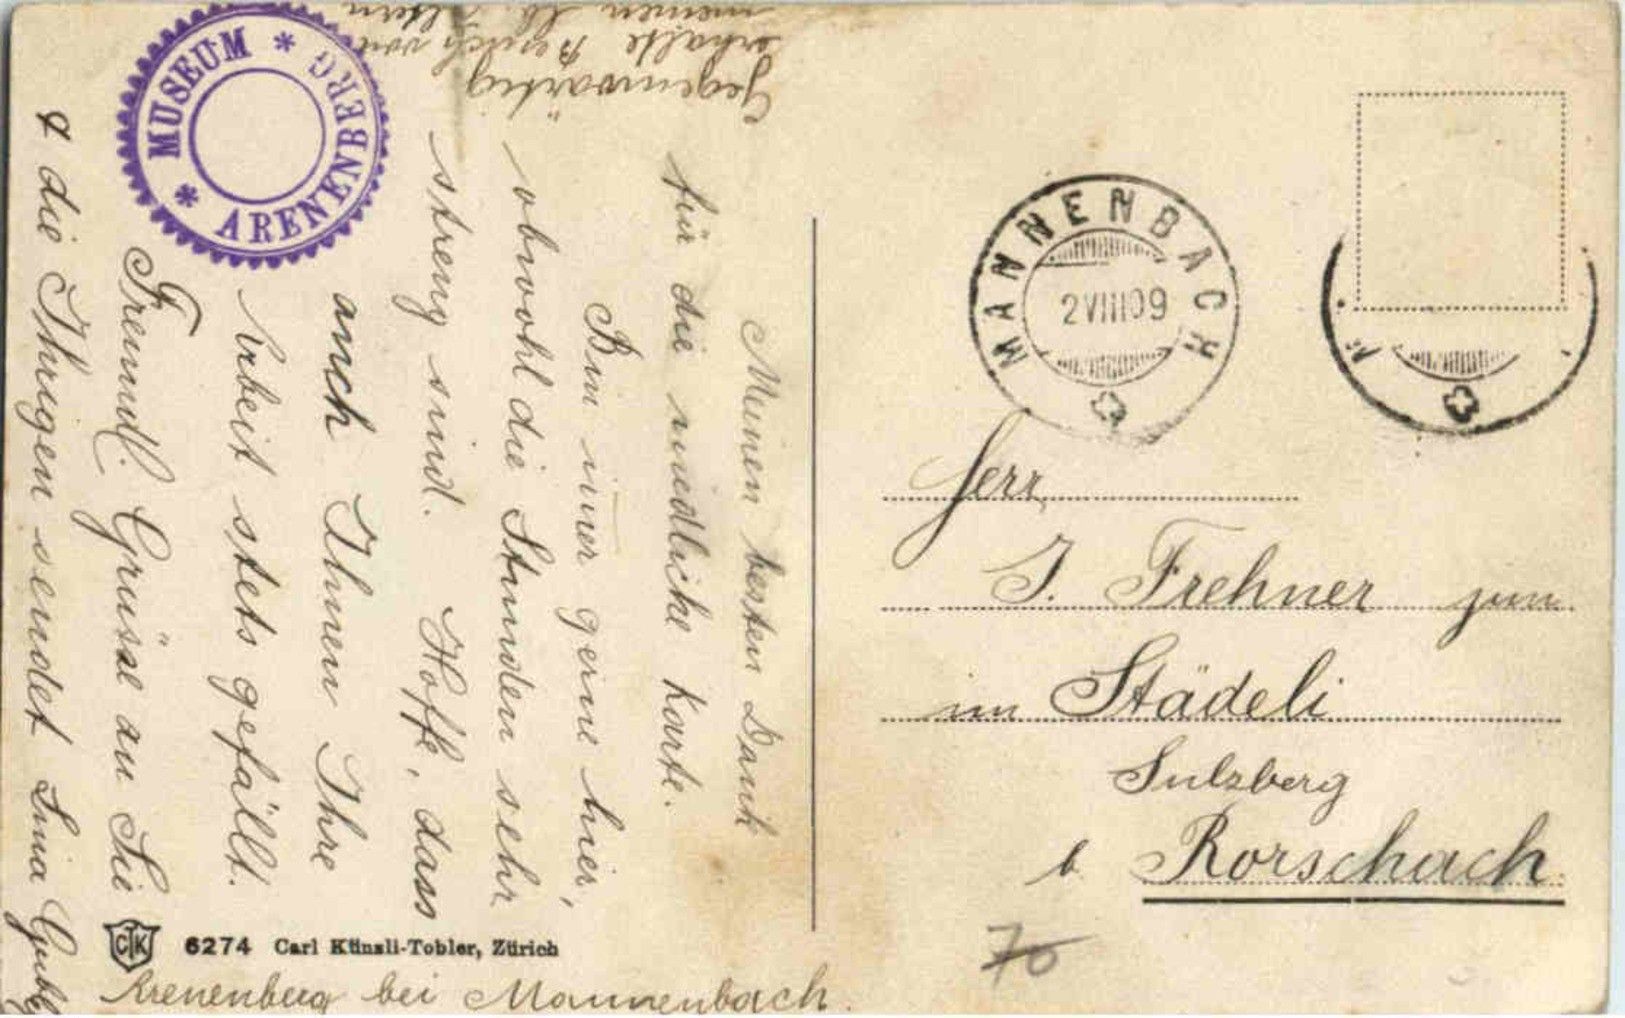 Gegenwärtig
erhalte Besuch von
meinen lb. Eltern
MUSEUM * ARENENBERG *
Meinen besten Dank
für die niedliche Karte.
Bin imer gerne hier,
obwohl die Stunden sehr
streng sind. Hoffe, dass
auch Ihnen Ihre
Arbeit stets gefällt.
Freundl. Grüsse an Sie
& die Ihrigen sendet Lina
Arenenberg bei Mannenbach.
CTK 6274 Carl Künzli-Tobler, Zürich
MANNENBACH
2 VIII 09
Herr
J. Frehner zum
im Städeli
Sulzberg
b Rorschach
70